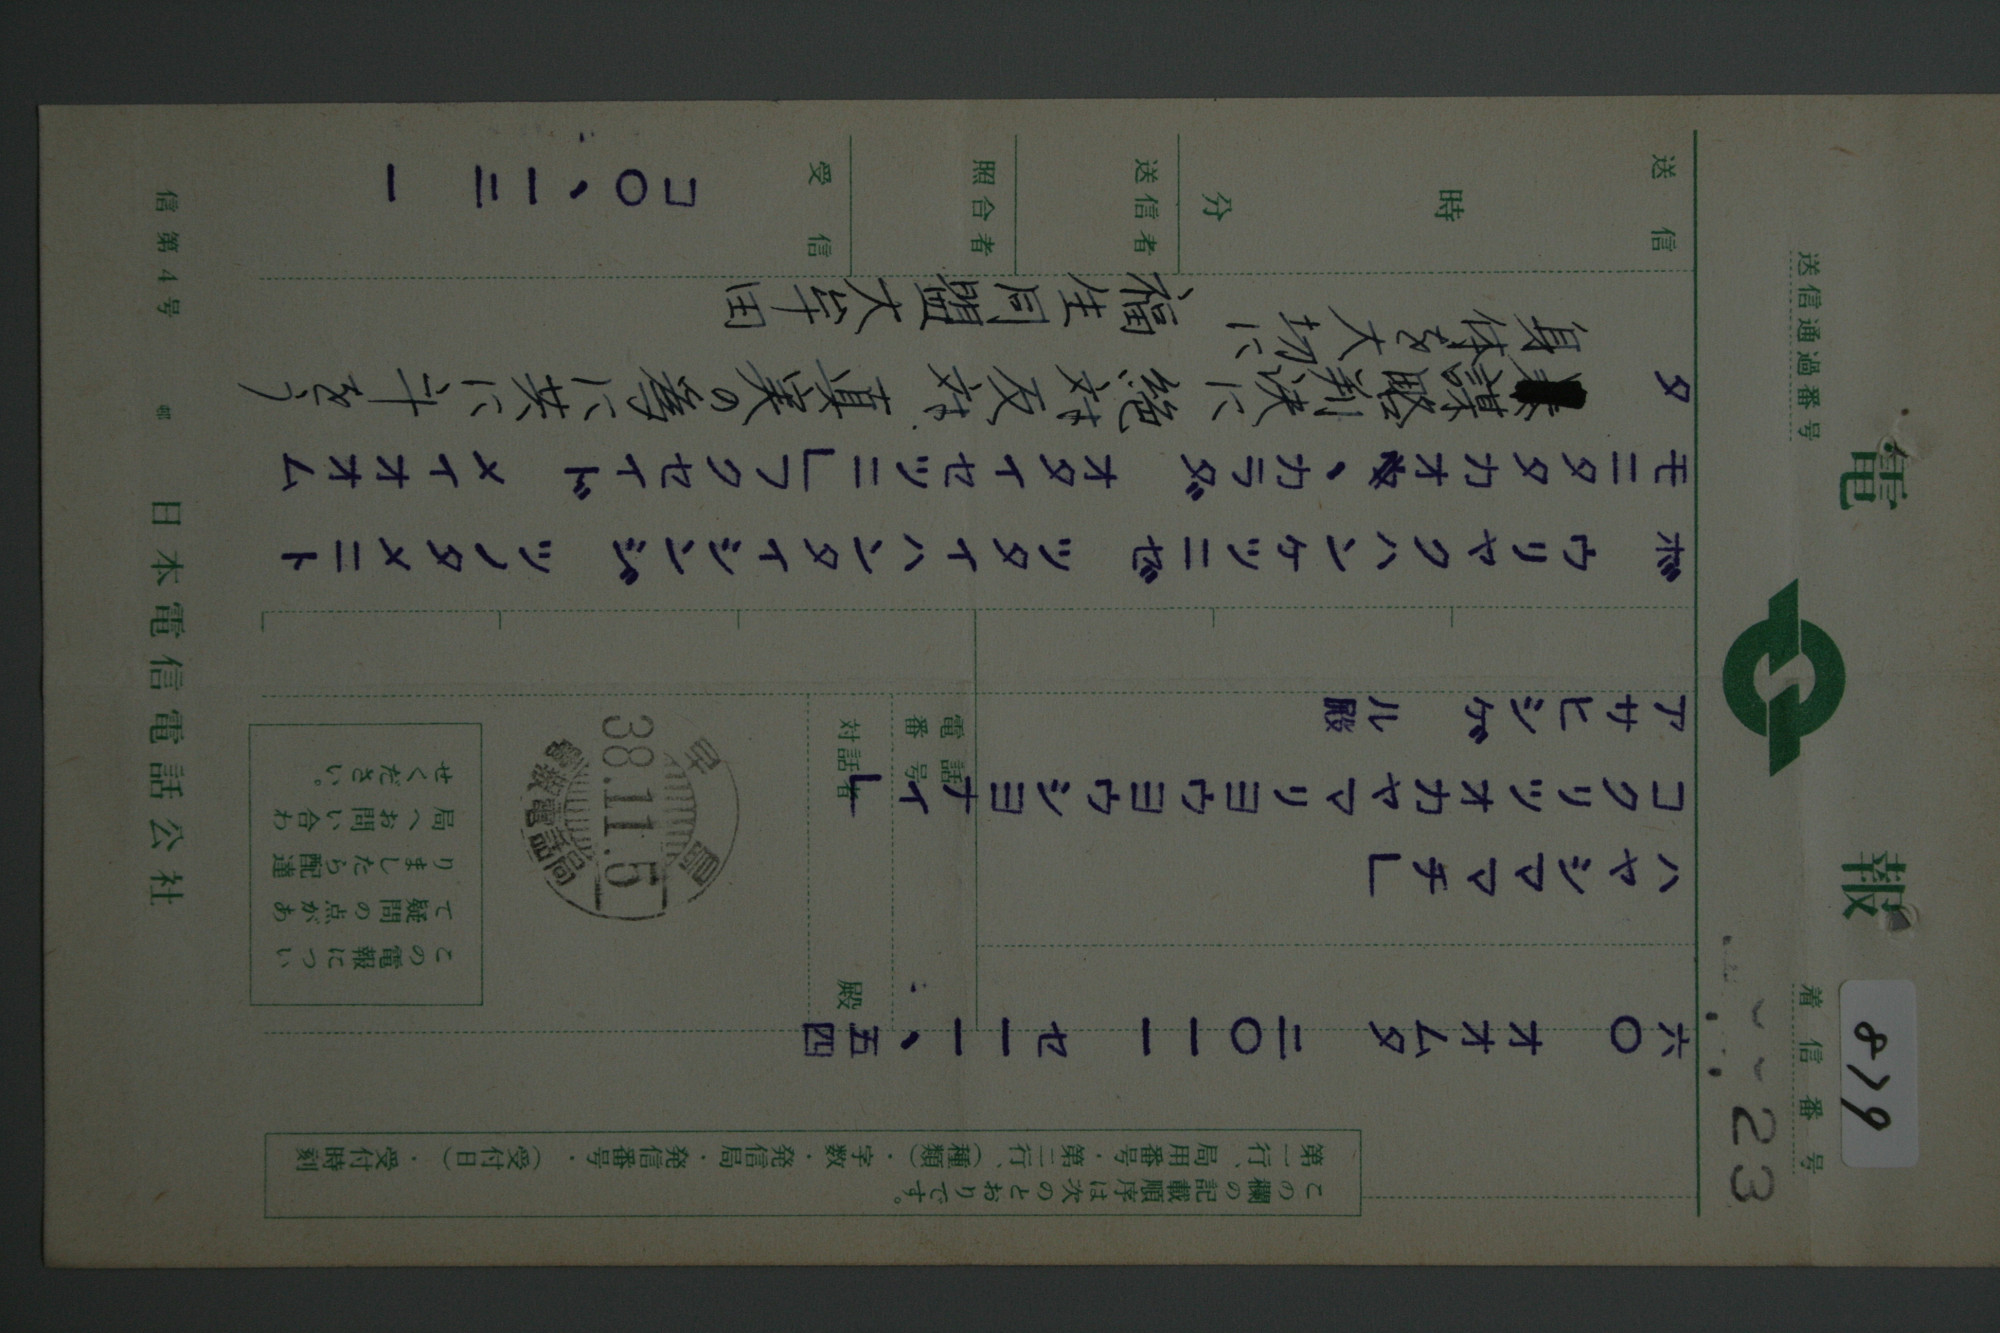 電報
送信通過番号
着信番号
23
829
この欄の記載順序は次のとおりです。
第一行、局用番号・第二行、(種類)・字数・発信局・発信番号・(受付日)・受付時刻
六〇 オオムタ 二〇一一 セ一一、五四
ハヤシママチ」
コクリツオカヤマリヨウヨウシヨナイ」
アサヒシゲル殿
電話番号
対話者 殿
38.11.5
電報電話局
この電報につい
て疑問の点があ
りましたら配達
局へお問い合わ
せください。
ボウリヤクハンケツニゼツタイハンタイシンジツノタメニト
モニタタカオ、カラダオタイセツニ」フクセイドメイオオム
タ
謀略判決に絶対反対 真実の為に共に斗をう
身体を大切に
福生同盟大牟田
送信
時
分
送信者
照合者
受信
コ〇、一二 一
信第4号
日本電信電話公社